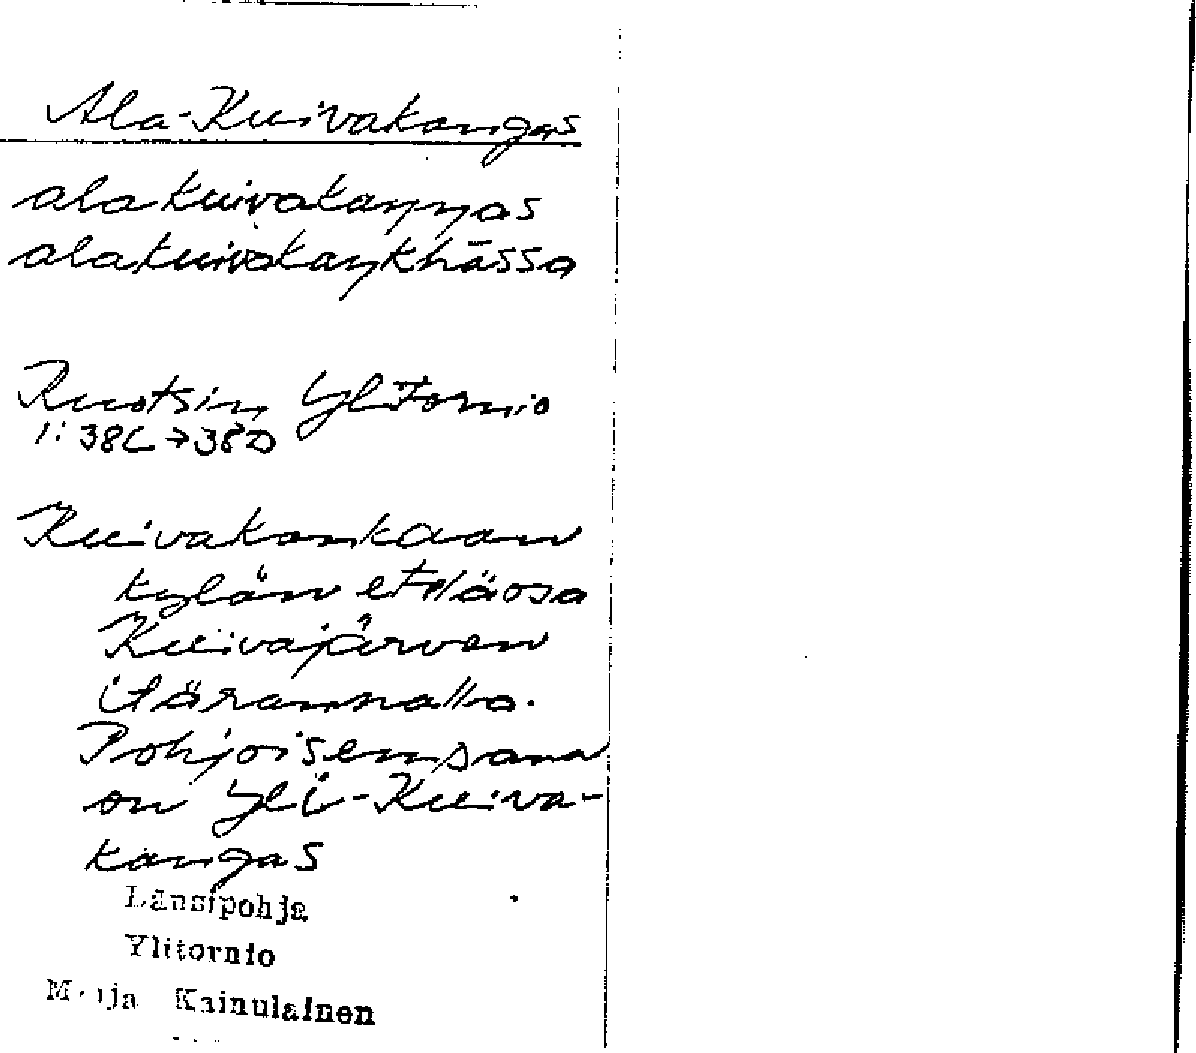 Ala-Kuivakangas
alakuivakaŋŋas
alakuivakaŋkhāssa
Ruotsin Ylitornio
1: 38C → 38D
Kuivakankaan
kylän eteläosa
Kuivajärven
itärannalla.
Pohjoisempana
on Yli-Kuiva-
kangas
Länsipohja
Ylitornio
Kainulainen